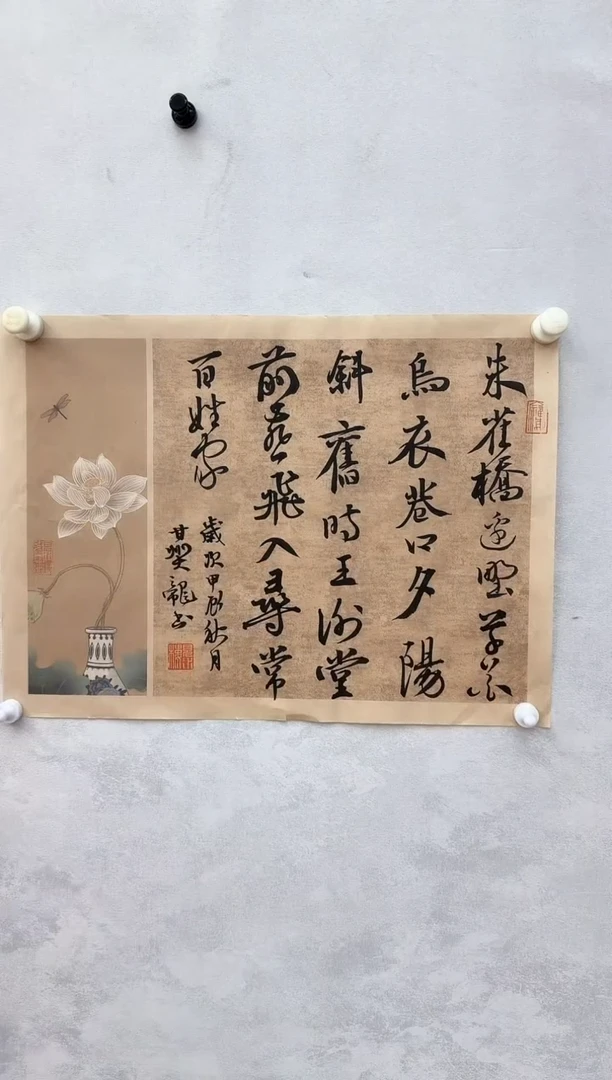 朱雀橋邊野草花
烏衣巷口夕陽
斜舊時王謝堂
前燕飛入尋常
百姓家
歲次甲辰秋月
甘樊龍書